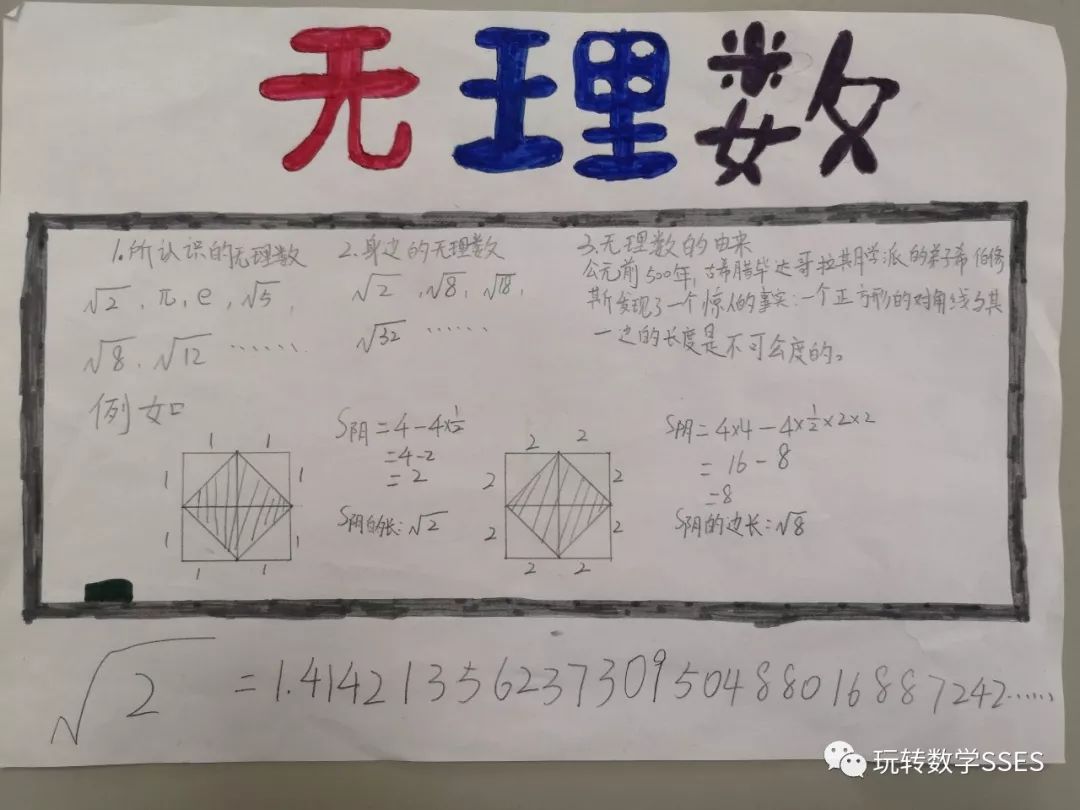 无理数
1.所认识的无理数
√2、π、e、√5、
√8、√12 ……
2.身边的无理数
√2、√8、√18、
√32 ……
3.无理数的由来
公元前500年，古希腊毕达哥拉斯学派的弟子希伯修
斯发现了一个惊人的事实：一个正方形的对角线与其
一边的长度是不可公度的。
例如
1 1
1 1
1 1
1 1
S阴=4-4×½
=4-2
=2
S阴的长：√2
2 2
2 2
2 2
2 2
S阴=4×4-4×½×2×2
= 16-8
=8
S阴的边长：√8
√2 =1.41421356237309504880168872​42……
玩转数学SSES